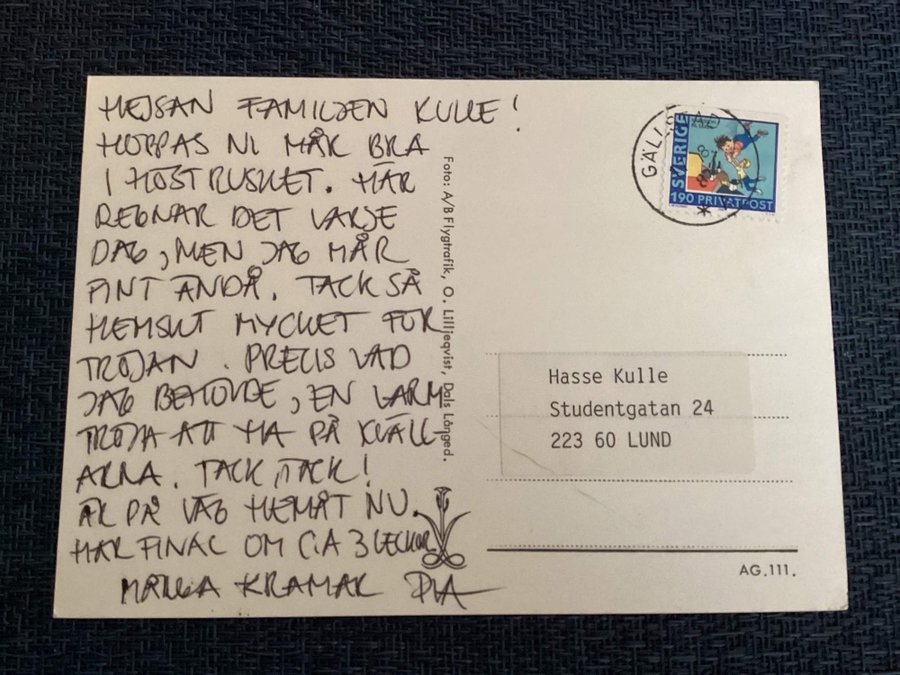 HEJSAN FAMILJEN KULLE!
HOPPAS NI MÅR BRA
I HÖSTRUSKET. HÄR
REGNAR DET VARJE
DAG, MEN JAG MÅR
FINT ÄNDÅ. TACK SÅ
HEMSKT MYCKET FÖR
TRÖJAN. PRECIS VAD
JAG BEHÖVDE, EN VARM
TRÖJA ATT HA PÅ KVÄLL-
ARNA. TACK, TACK!
ÄR PÅ VÄG HEMÅT NU.
HAR FINAL OM C:A 3 VECKOR
MÅNGA KRAMAR PIA
Foto: A/B Flygtrafik, O. Lilljeqvist, Dals Långed.
SVERIGE
190 PRIVATPOST
Hasse Kulle
Studentgatan 24
223 60 LUND
AG.111.